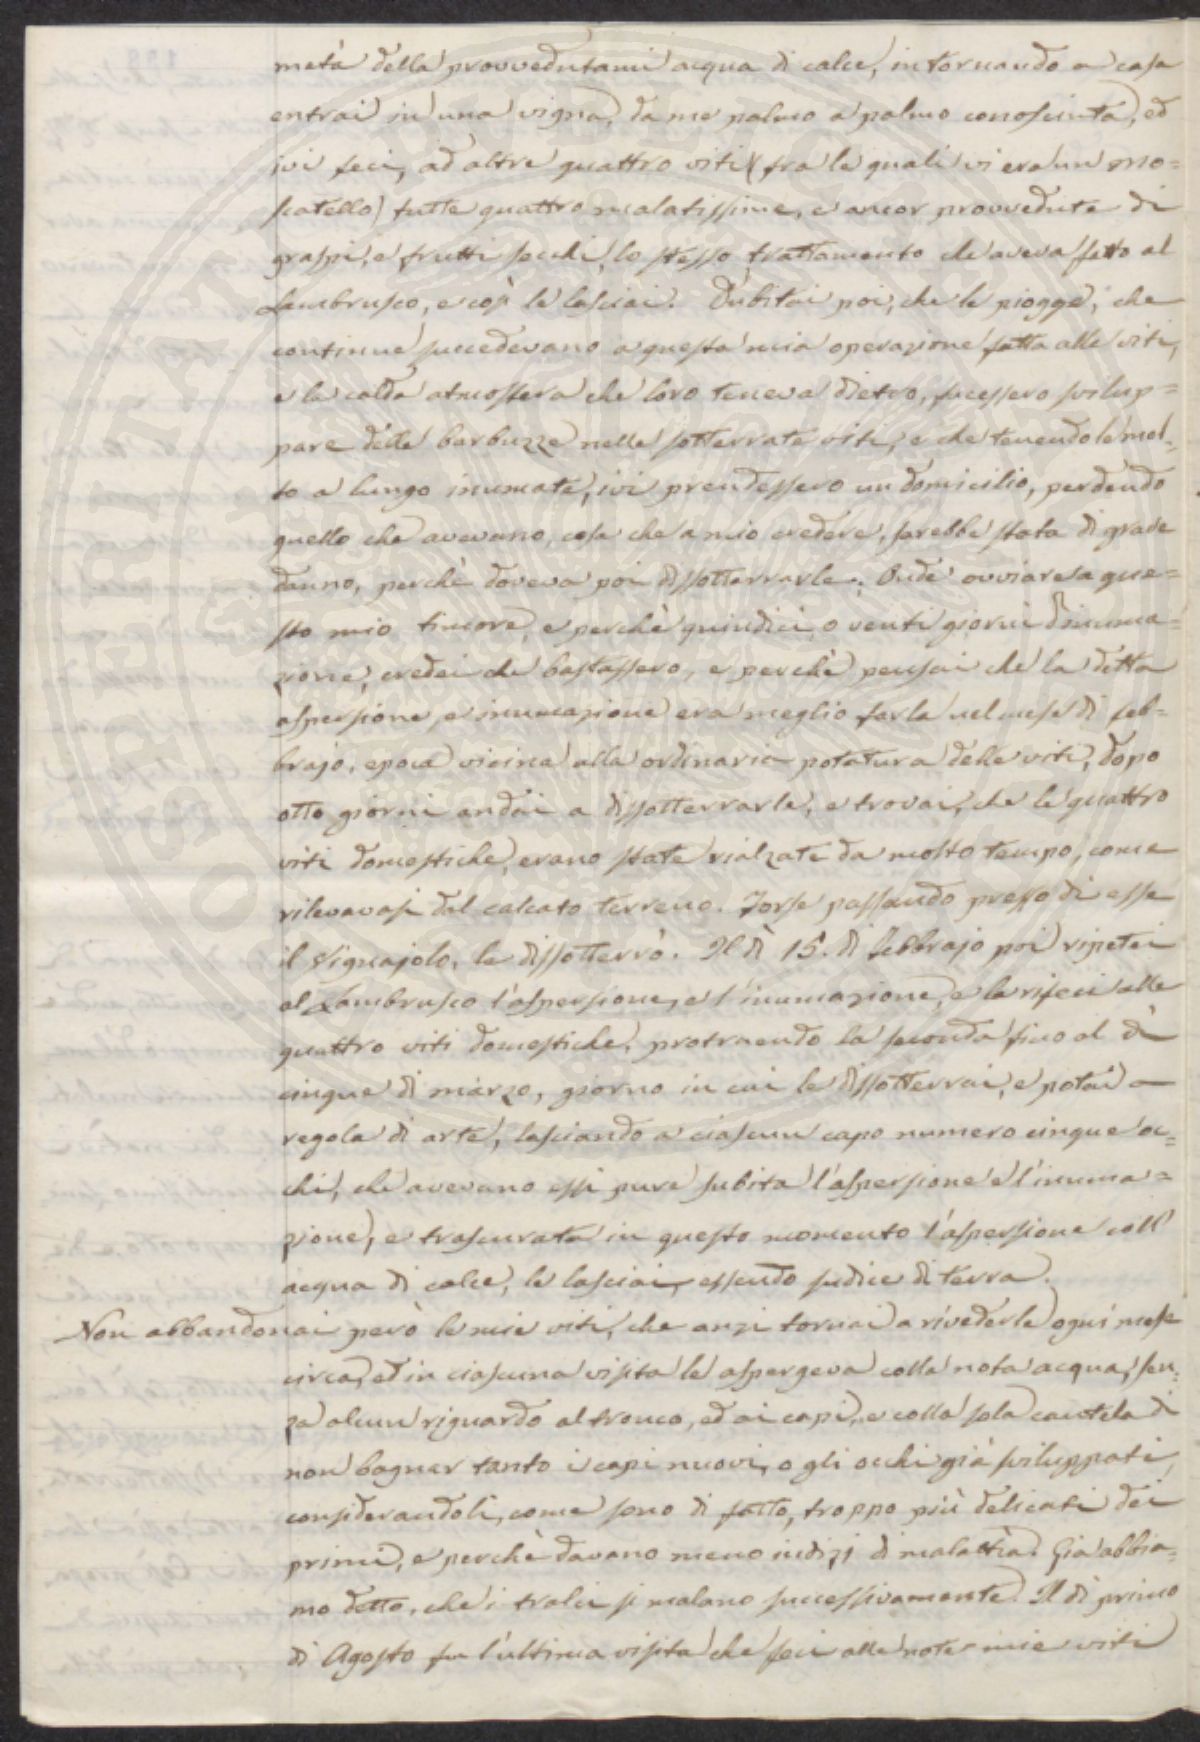 metà della provvedutami acqua di calce, in tornando a casa
entrai in una vigna, da me palmo a palmo conosciuta, ed
ivi feci, ad altre quattro viti (fra le quali vi era un mo=
scatello) tutte quattro malatissime, e ancor provvedute di
graspi, e frutti secchi, lo stesso trattamento che aveva fatto al
Lambrusco, e così le lasciai. Dubitai poi, che le piogge, che
continue succedevano a questa mia operazione fatta alle viti,
e la calda atmosfera che loro teneva dietro, facessero svilup=
pare delle barbuzze nelle sotterrate viti, e che tenendole mol=
to a lungo inumate, ivi prendessero un domicilio, perdendo
quello che avevano, cosa che a mio credere, sarebbe stata di grave
danno, perchè doveva poi dissotterrarle. Onde ovviare a que=
sto mio timore, e perchè quindici, o venti giorni d'inuma=
zione, credei che bastassero, e perchè pensai che la detta
aspersione, e inumazione era meglio farla nel mese di feb=
brajo, epoca vicina alla ordinaria potatura delle viti, dopo
otto giorni andai a dissotterrarle, e trovai, che le quattro
viti domestiche, erano state rialzate da molto tempo, come
rilevavasi dal calcato terreno. Forse passando presso di esse
il Vignajolo, le dissotterrò. Il dì 15. di febbrajo poi ripetei
al Lambrusco l'aspersione, e l'inumazione, e la rifeci alle
quattro viti domestiche, protraendo la seconda fino al dì
cinque di marzo, giorno in cui le dissotterrai, e potai a
regola di arte, lasciando a ciascun capo numero cinque oc=
chi, che avevano essi pure subita l'aspersione e l'inuma=
zione, e trascurata in questo momento l'aspersione coll'
acqua di calce, le lasciai, essendo sudice di terra.
Non abbandonai però le mie viti, che anzi tornai a rivederle ogni mese
circa, ed in ciascuna visita le aspergeva colla nota acqua, sen=
za alcun riguardo al tronco, ed ai capi, e colla sola cautela di
non bagnar tanto i capi nuovi, o gli occhi già sviluppati,
considerandoli, come sono di fatto, troppo più delicati dei
primi, e perchè davano meno indizj di malattia. Già abbia=
mo detto, che i tralci si malano successivamente. Il dì primo
di Agosto fu l'ultima visita che feci alle note mie viti